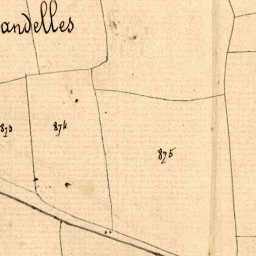 andelles
873
874
875